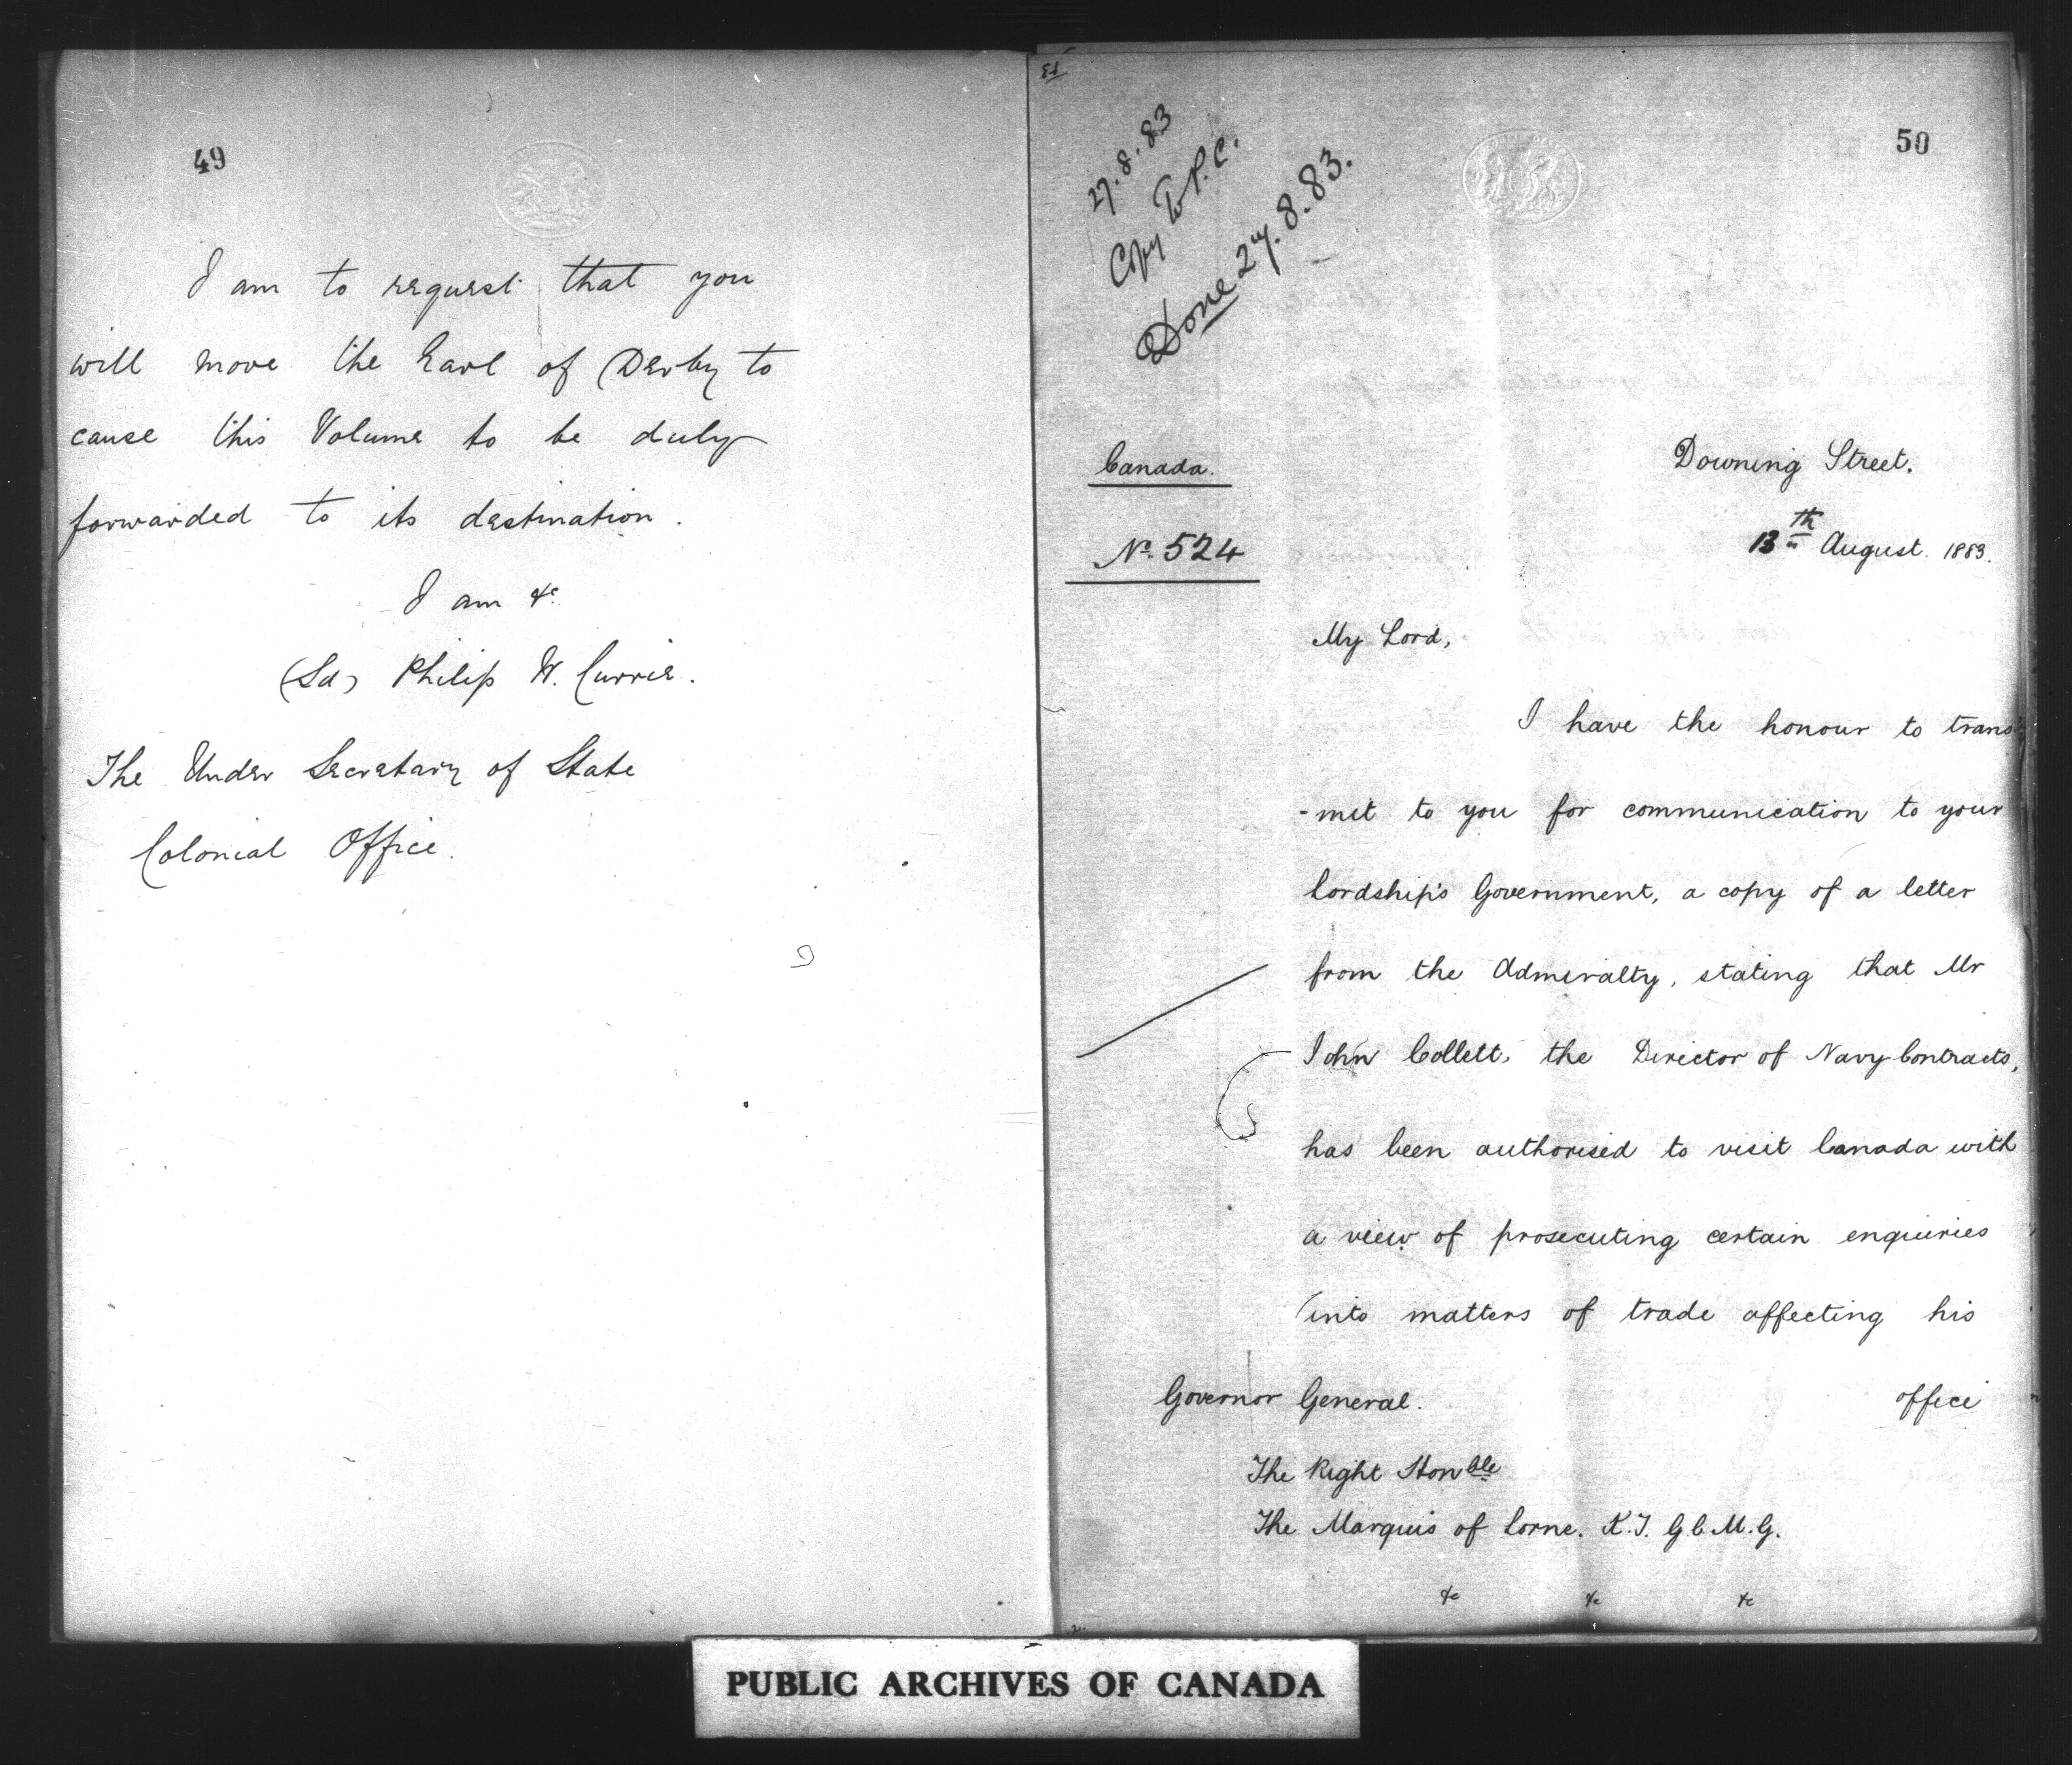 49
I am to request that you
will move the Earl of Derby to
cause this Volume to be duly
forwarded to its destination.
I am &c
(Sd) Philip W. Currie.
The Under Secretary of State
Colonial Office.
50
27.8.83
Copy to P.C.
Done 27.8.83.
Canada.
No. 524
Downing Street.
13th August. 1883.
My Lord,
I have the honour to trans-
-mit to you for communication to your
Lordship's Government, a copy of a letter
from the Admiralty, stating that Mr
John Collett, the Director of Navy Contracts,
has been authorised to visit Canada with
a view of prosecuting certain enquiries
into matters of trade affecting his
office
Governor General.
The Right Honble
The Marquis of Lorne. K.T. G.C.M.G.
&c &c &c
PUBLIC ARCHIVES OF CANADA